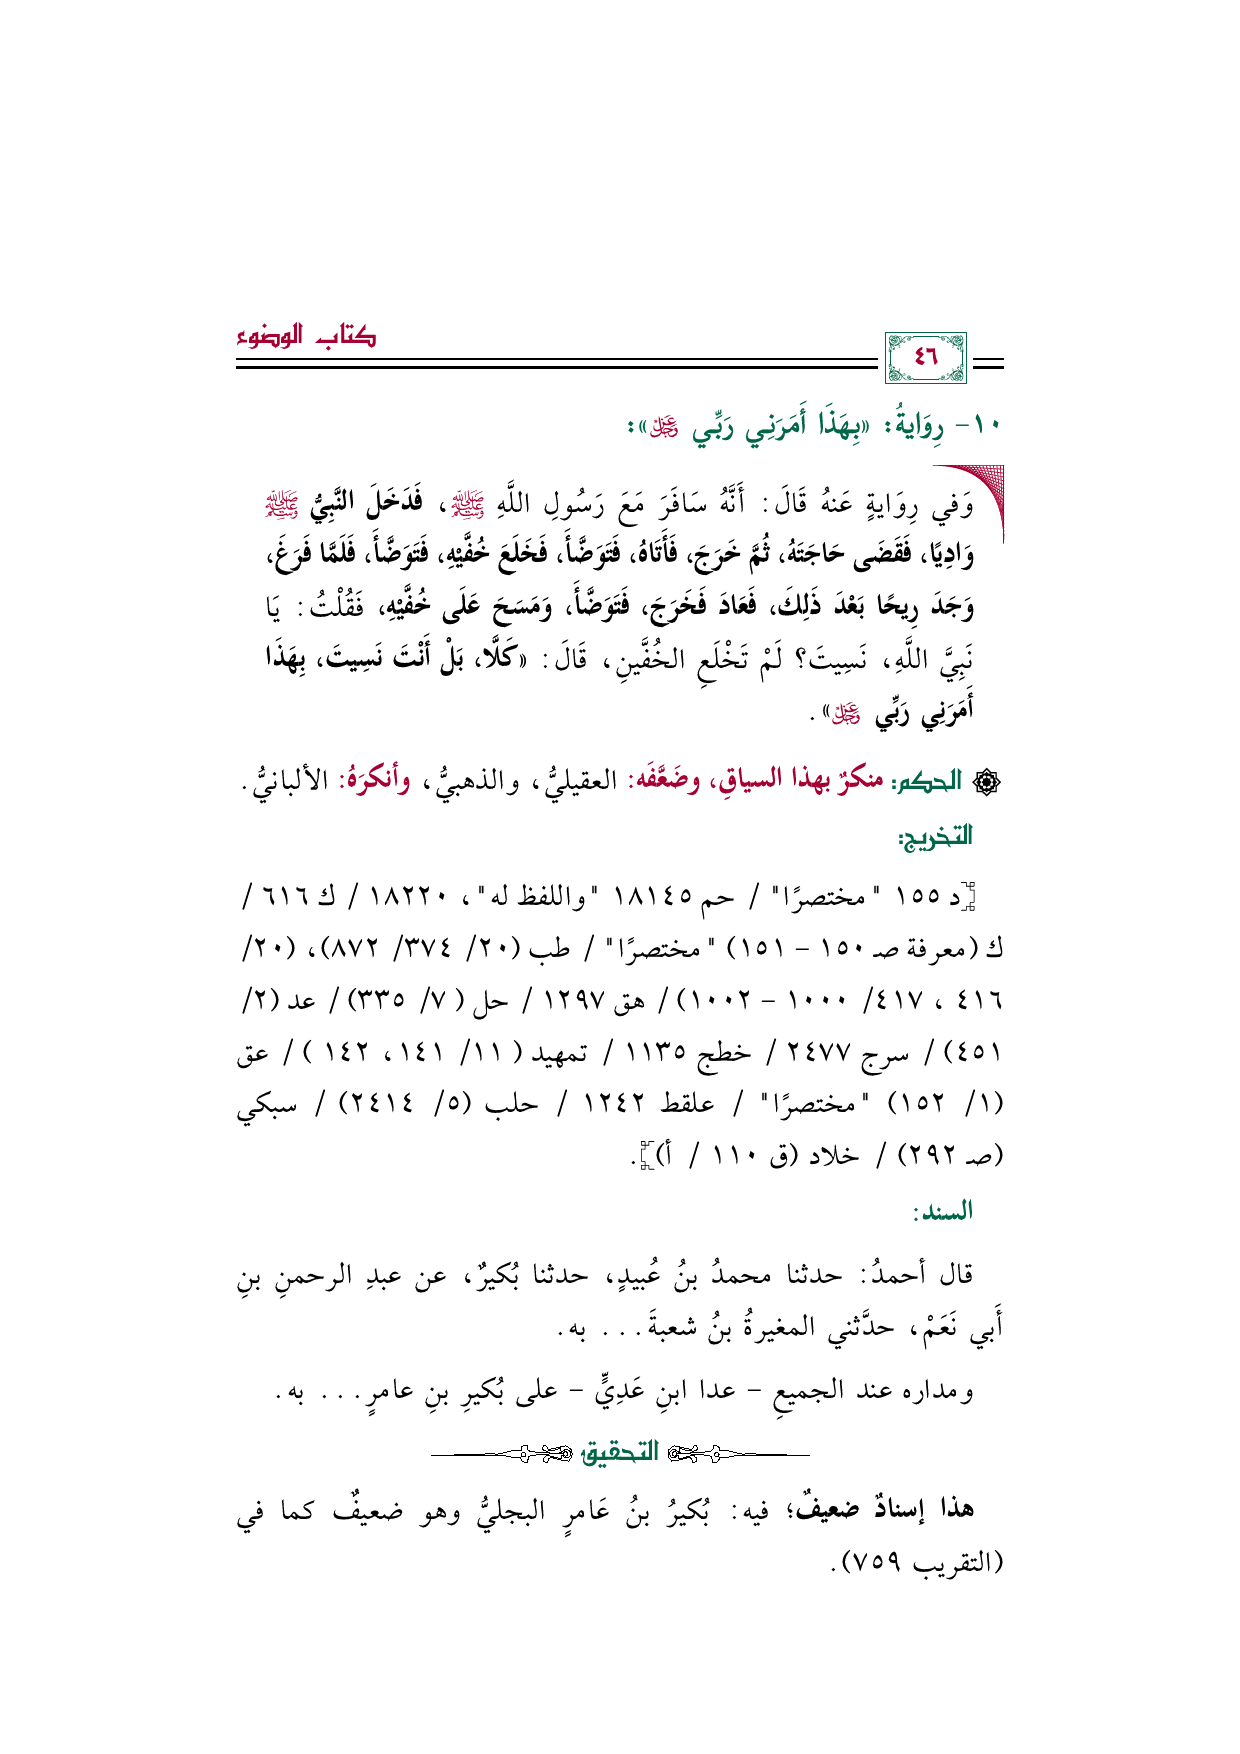 كتاب الوضوء
٤٦
١٠- رِوَايةُ: «بِهَذَا أَمَرَنِي رَبِّي ﷿»:
وَفي رِوَايةٍ عَنهُ قَالَ: أَنَّهُ سَافَرَ مَعَ رَسُولِ اللَّهِ ﷺ، فَدَخَلَ النَّبِيُّ ﷺ
وَادِيًا، فَقَضَى حَاجَتَهُ، ثُمَّ خَرَجَ، فَأَتَاهُ، فَتَوَضَّأَ، فَخَلَعَ خُفَّيْهِ، فَتَوَضَّأَ، فَلَمَّا فَرَغَ،
وَجَدَ رِيحًا بَعْدَ ذَلِكَ، فَعَادَ فَخَرَجَ، فَتَوَضَّأَ، وَمَسَحَ عَلَى خُفَّيْهِ، فَقُلْتُ: يَا
نَبِيَّ اللَّهِ، نَسِيتَ؟ لَمْ تَخْلَعِ الخُفَّينِ، قَالَ: «كَلَّا، بَلْ أَنْتَ نَسِيتَ، بِهَذَا
أَمَرَنِي رَبِّي ﷿».
الحكم: منكرٌ بهذا السياقِ، وضَعَّفَه: العقيليُّ، والذهبيُّ، وأنكرَهُ: الألبانيُّ.
التخريج:
[د ١٥٥ "مختصرًا" / حم ١٨١٤٥ "واللفظ له"، ١٨٢٢٠ / ك ٦١٦ /
ك (معرفة صـ ١٥٠ - ١٥١) "مختصرًا" / طب (٢٠/ ٣٧٤/ ٨٧٢)، (٢٠/
٤١٦ ، ٤١٧/ ١٠٠٠ - ١٠٠٢) / هق ١٢٩٧ / حل (٧/ ٣٣٥) / عد (٢/
٤٥١) / سرج ٢٤٧٧ / خطج ١١٣٥ / تمهيد (١١/ ١٤١، ١٤٢ ) / عق
(١/ ١٥٢) "مختصرًا" / علقط ١٢٤٢ / حلب (٥/ ٢٤١٤) / سبكي
(صـ ٢٩٢) / خلاد (ق ١١٠ / أ)].
السند:
قال أحمدُ: حدثنا محمدُ بنُ عُبيدٍ، حدثنا بُكيرٌ، عن عبدِ الرحمنِ بنِ
أَبي نَعَمْ، حدَّثني المغيرةُ بنُ شعبةَ... به.
ومداره عند الجميعِ - عدا ابنِ عَدِيٍّ - على بُكيرِ بنِ عامرٍ... به.
التحقيق
هذا إسنادٌ ضعيفٌ؛ فيه: بُكيرُ بنُ عَامرٍ البجليُّ وهو ضعيفٌ كما في
(التقريب ٧٥٩).